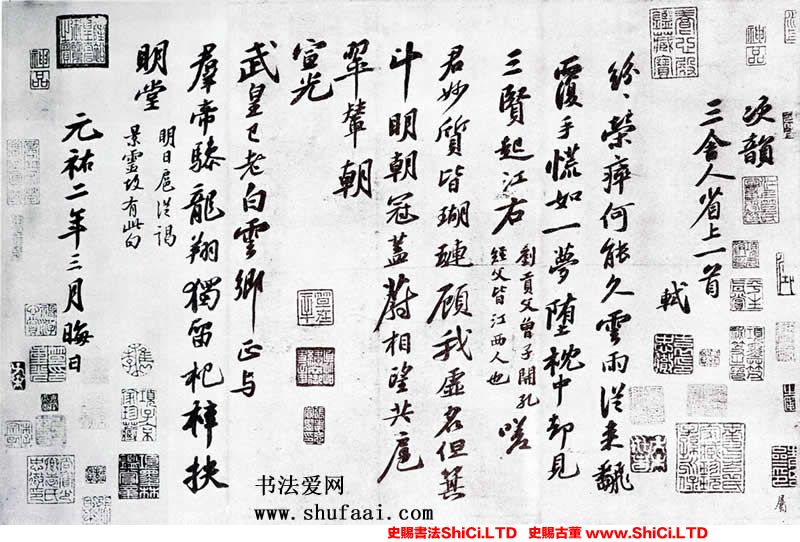 次韻
三舍人省上一首
軾
紛〻榮瘁何能久雲雨從来翻
覆手慌如一夢堕枕中却見
三賢起江右 劉貢父曾子開孔
經父皆江西人也 嗟
君妙質皆瑚璉顧我虛名但箕
斗明朝冠盖蔚相望共扈
翠輦朝
宣光
武皇已老白雲鄉正与
羣帝驂龍翔獨留杞梓扶
明堂 明日扈從謁
景靈故有此句
元祐二年三月晦日
神品
神品
養心殿
鑑藏寶
书法爱网
www.shufaai.com
史賜書法ShiCi.LTD 史賜古董 www.ShiCi.LTD